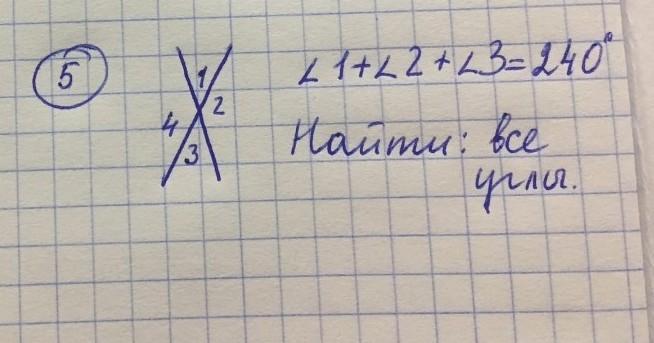 5
1
2
4
3
∠1+∠2+∠3=240°
Найти: все
углы.